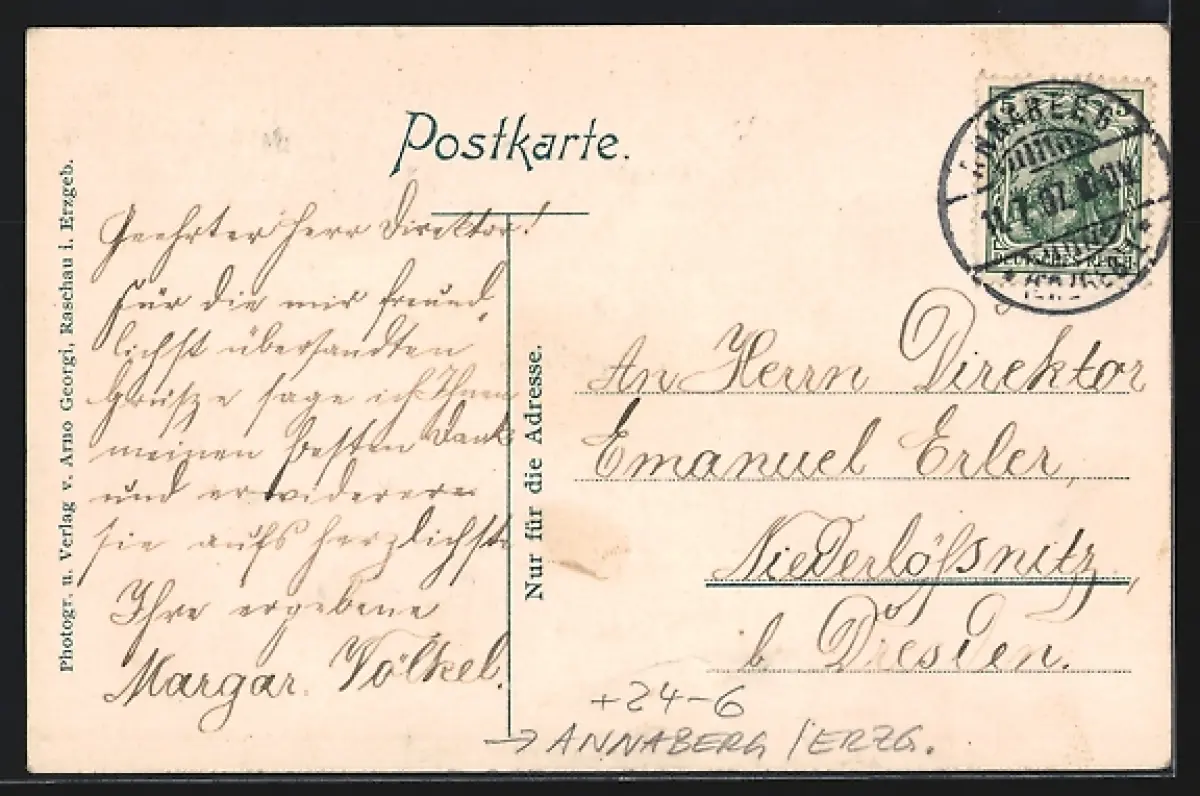 Postkarte.
Photogr. u. Verlag v. Arno Georgi, Raschau i. Erzgeb.
Geehrter Herr Direktor!
Für die mir freund-
lichst übersandten
Grüsze sage ich Ihnen
meinen besten Dank
und erwidere
sie aufs herzlichste
Ihre ergebene
Margar. Völkel.
Nur für die Adresse.
ANNABERG
11.7.07.
* (ERZGEB.) *
DEUTSCHES REICH
An Herrn Direktor
Emanuel Erler,
Niederlößnitz,
b. Dresden.
+24-6
→ ANNABERG /ERZG.